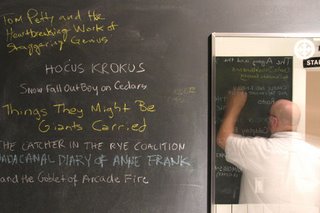 Tom Petty and the
Heartbreaking Work of
Staggering Genius
HOCUS KROKUS
Snow Fall Out Boy on Cedars
Things They Might Be
Giants Carried
THE CATCHER IN THE RYE COALITION
ADA CANAL DIARY OF ANNE FRANK
and the Goblet of Arcade Fire
STAI